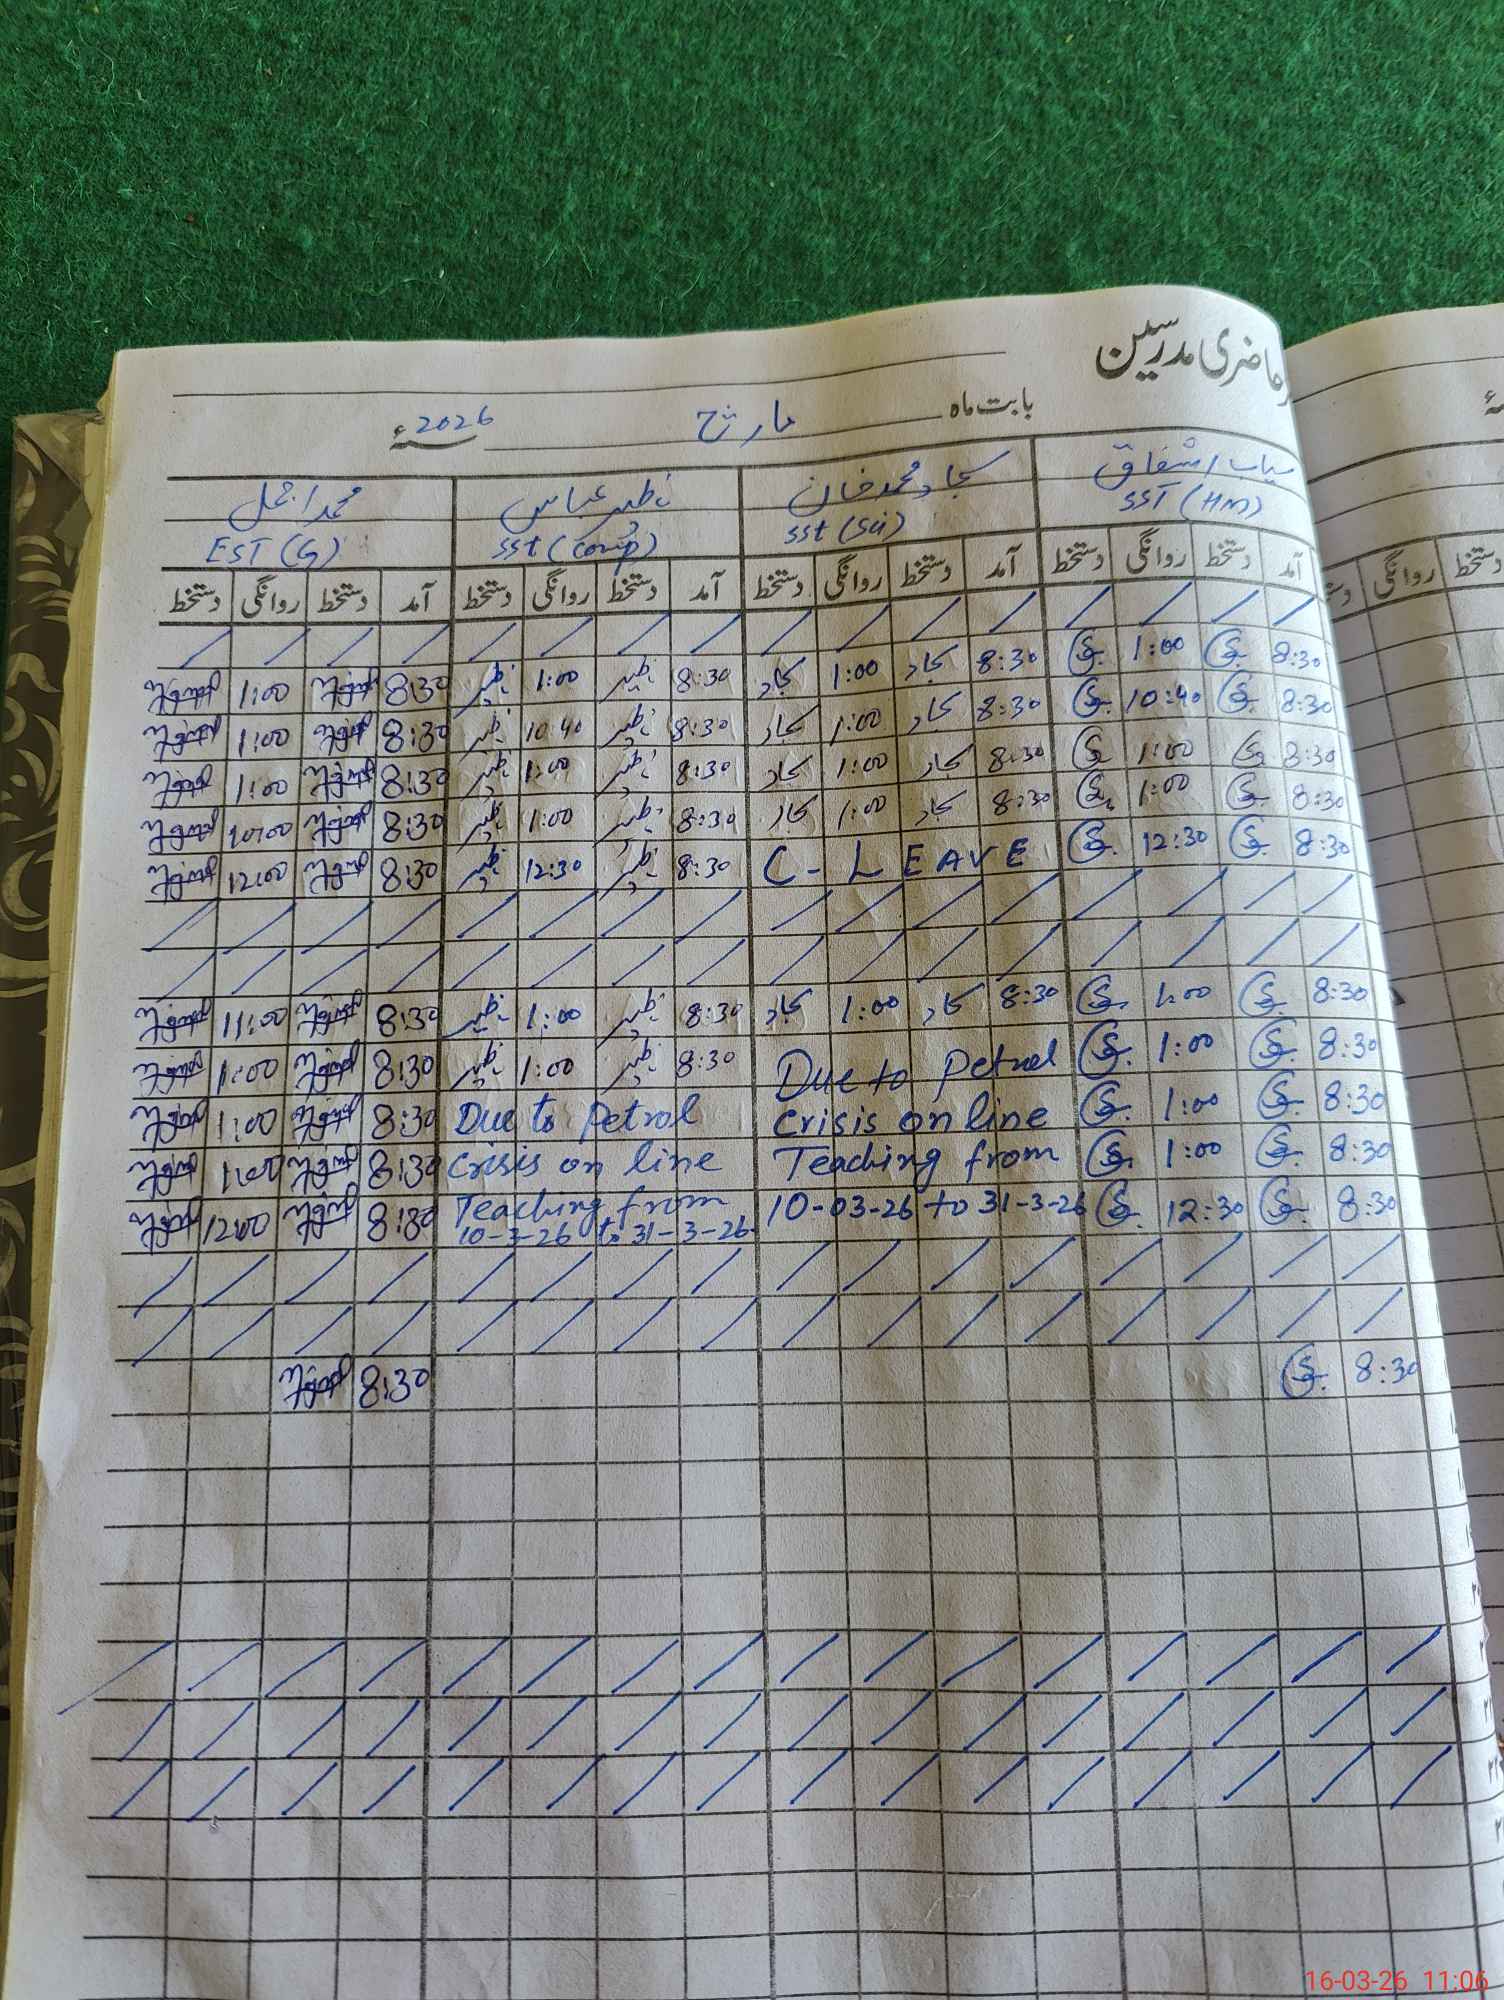 حاضری مدرسین
بابت ماہ مارچ 2026 سنہء
سیاب اشفاق سجاد محمد خان نظیر عباس محمد اجمل
SST (HM) SSt (Sci) SSt (Comp) EST (G)
آمد دستخط روانگی دستخط آمد دستخط روانگی دستخط آمد دستخط روانگی دستخط آمد دستخط روانگی دستخط
8:30 1:00 8:30 سجاد 1:00 سجاد 8:30 نظیر 1:00 نظیر 8:30 1:00
8:30 10:40 8:30 سجاد 1:00 سجاد 8:30 نظیر 10:40 نظیر 8:30 1:00
8:30 1:00 8:30 سجاد 1:00 سجاد 8:30 نظیر 1:00 نظیر 8:30 1:00
8:30 1:00 8:30 سجاد 1:00 سجاد 8:30 نظیر 1:00 نظیر 8:30
8:30 12:30 C-LEAVE 8:30 نظیر 12:30 نظیر 8:30 12:00
8:30 1:00 8:30 سجاد 1:00 سجاد 8:30 نظیر 1:00 نظیر 8:30 11:00
8:30 1:00 Due to Petrol 8:30 نظیر 1:00 نظیر 8:30 1:00
8:30 1:00 Crisis on line Due to Petrol 8:30 1:00
8:30 1:00 Teaching from Crisis on line 8:30 1:00
8:30 12:30 10-03-26 to 31-3-26 Teaching from 8:30 12:00
10-3-26 to 31-3-26
8:30 8:30
16-03-26 11:06